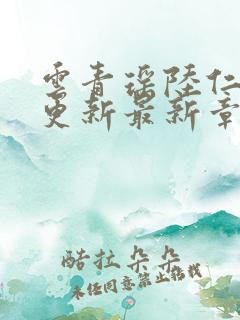 雲青瑤陸仁
更新最新章
酷拉朵朵
未经同意禁止转载